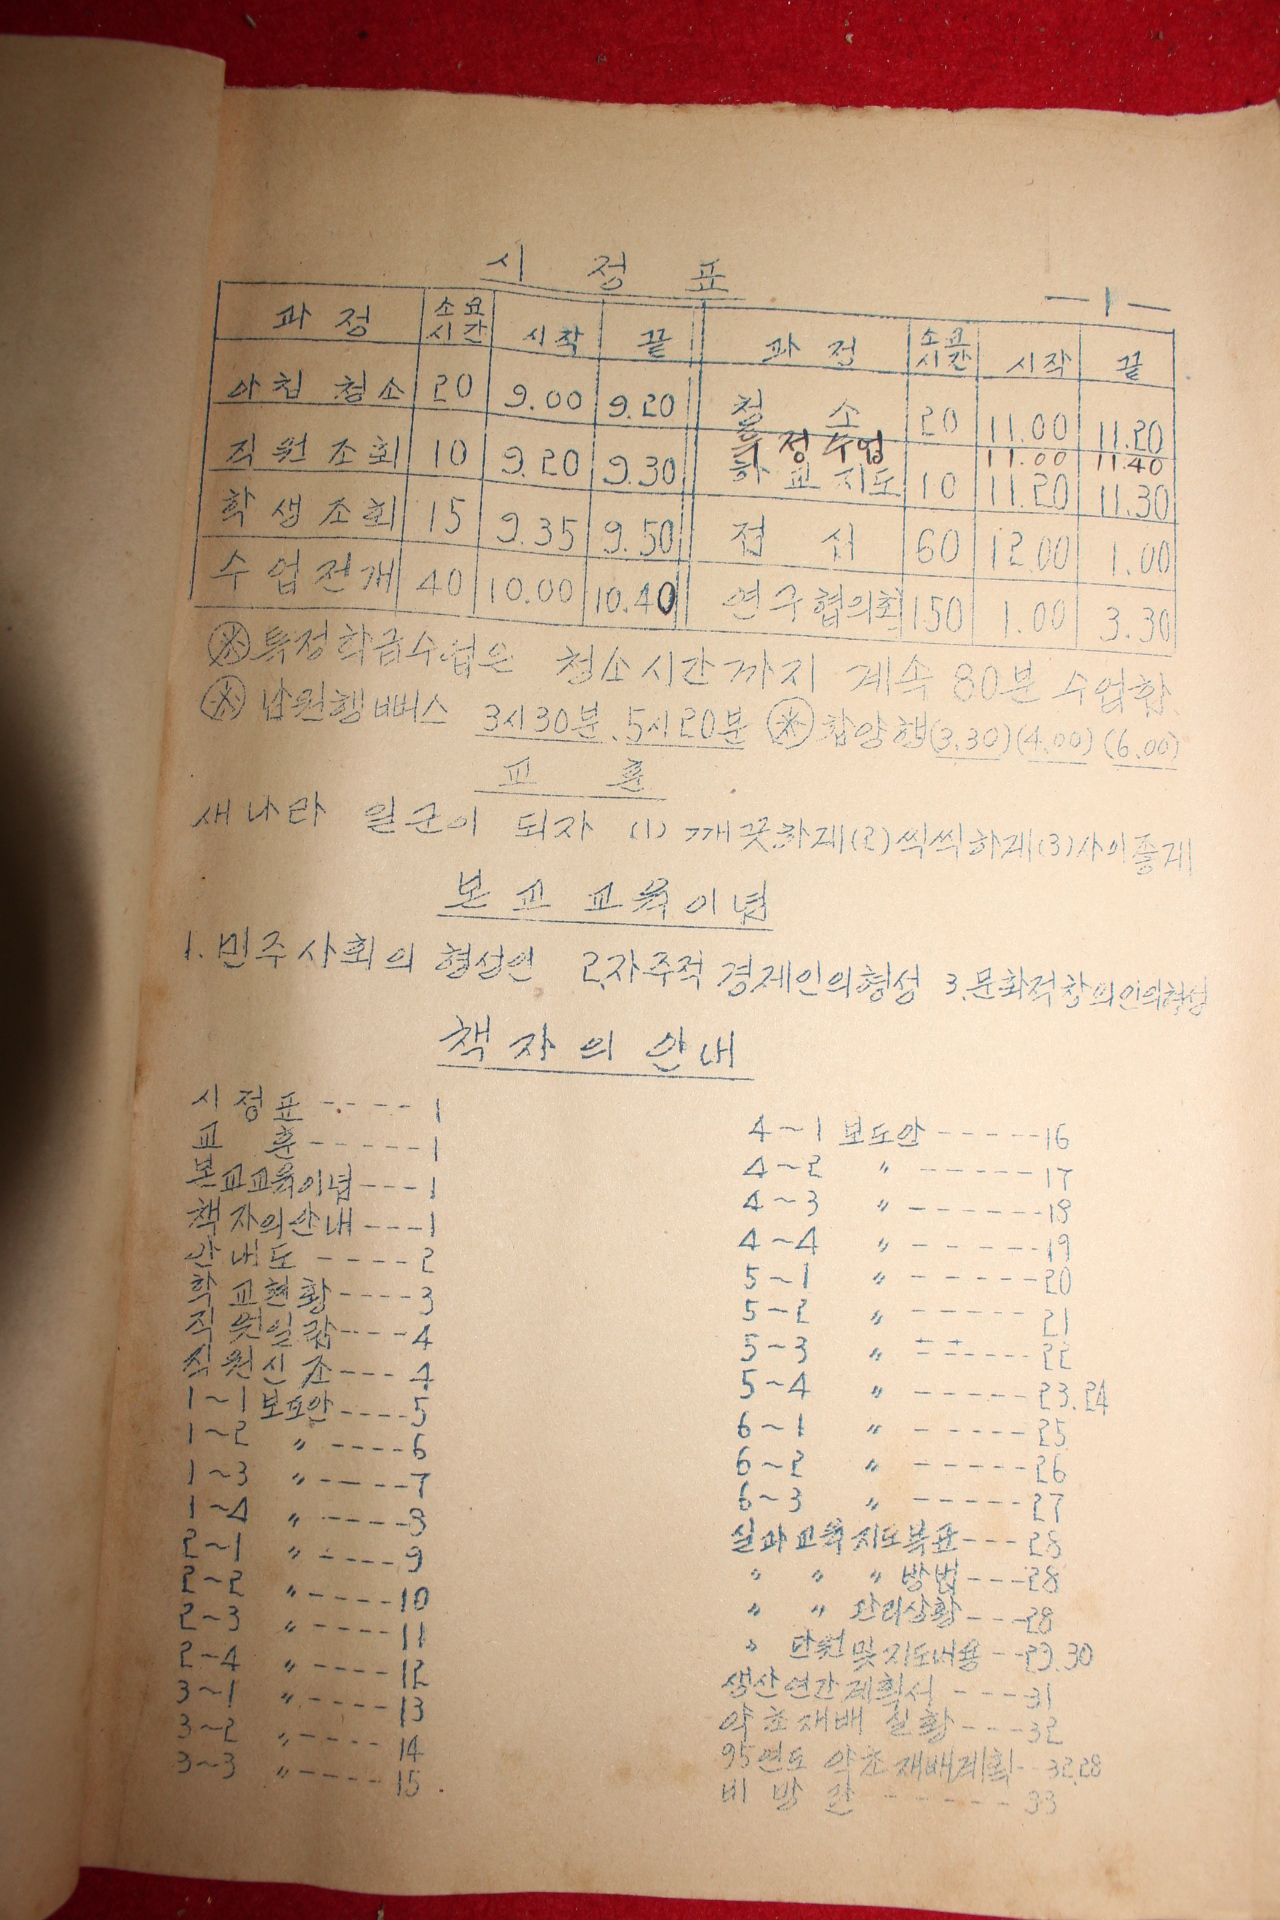 시 정 표
— 1 —
과 정 소요시간 시작 끝 과 정 소요시간 시작 끝
아침 청소 20 9.00 9.20 청 소 20 11.00 11.20
특정수업 11.00 11.40
직원조회 10 9.20 9.30 하교지도 10 11.20 11.30
학생조회 15 9.35 9.50 점 심 60 12.00 1.00
수업전개 40 10.00 10.40 연구협의회 150 1.00 3.30
※ 특정학급수업은 청소시간까지 계속 80분 수업함
※ 남원행뻐스 3시30분, 5시20분 ※ 함양행(3.30)(4.00)(6.00)
교 훈
새나라 일군이 되자 (1) 깨끗하게(2)씩씩하게(3)사이좋게
본교 교육이념
1. 민주사회의 형성인 2.자주적 경제인의형성 3.문화적창의인의형성
책자의 안내
시정표 ---- 1
교 훈 ----- 1
본교교육이념 --- 1
책자의안내 --- 1
안내도 ---- 2
학교현황 ---- 3
직원일람 ---- 4
직원신조 --- 4
1~1 보도안 ---- 5
1~2 〃 ---- 6
1~3 〃 ---- 7
1~4 〃 ---- 8
2~1 〃 ---- 9
2~2 〃 ---- 10
2~3 〃 ---- 11
2~4 〃 ---- 12
3~1 〃 ---- 13
3~2 〃 ---- 14
3~3 〃 ---- 15
4~1 보도안 ----- 16
4~2 〃 ------ 17
4~3 〃 ------ 18
4~4 〃 ------ 19
5~1 〃 ------ 20
5~2 〃 ------ 21
5~3 〃 ------ 22
5~4 〃 ----- 23.24
6~1 〃 ----- 25
6~2 〃 ----- 26
6~3 〃 ----- 27
실과교육지도목표 --- 28
〃 〃 〃 방법 --- 28
〃 〃 관리상황 --- 28
〃 단원및지도내용 -- 29.30
생산연간계획서 --- 31
약초재배 실황 --- 32
95연도 약초재배계획 -- 32.28
비방란 ------ 33